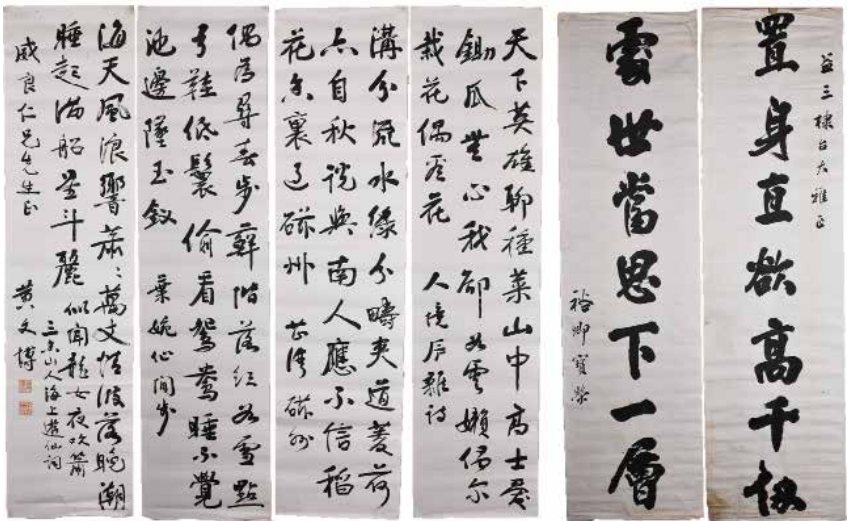 益三棣台大雅正
置身直欲高千級
處世當思下一層
裕卿寶
天下英雄聊種菜山中高士愛
鋤瓜無心我卻如雲嬾偶爾
栽花偶看花 人境廬雜詩
溝分流水綠分疇夾道菱荷
六自秋說與南人應不信稻
花香裏過磁州 磁州
偶為尋春步蘚階落紅如雪點
弓鞋低鬟偷看鴛鴦睡不覺
池邊墜玉釵 葉婉仙閒步
海天風浪響蕭々萬丈情波落晚潮
睡起滿船星斗麗 似聞龍女夜吹簫
山人海上遊仙詞
威良仁兄先生正
黃文博